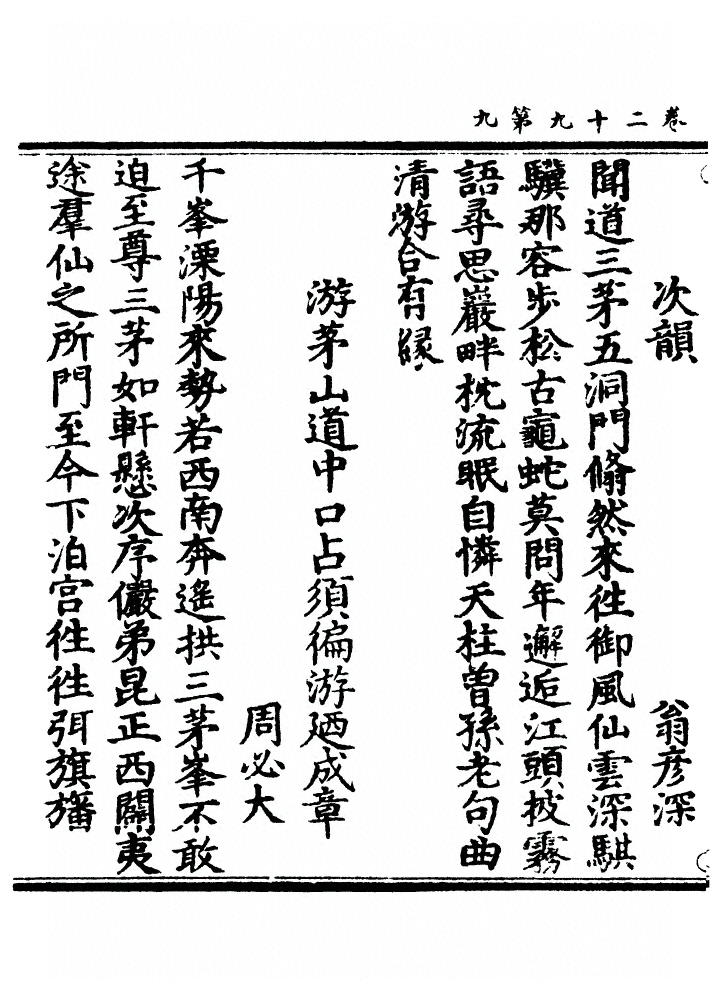 卷二十九第九
次韻
翁彦深
聞道三茅五洞門翛然來往御風仙雲深騏
驥那容步松古龜蛇莫問年邂逅江頭披霧
語尋思巖畔枕流眠自憐天柱曾孫老句曲
清游合有緣
游茅山道中口占須徧游廼成章
周必大
千峯溧陽來勢若西南奔遙拱三茅峯不敢
迫至尊三茅如軒懸次序儼弟昆正西闢夷
途羣仙之所門至今下泊宮徃徃弭旗旛